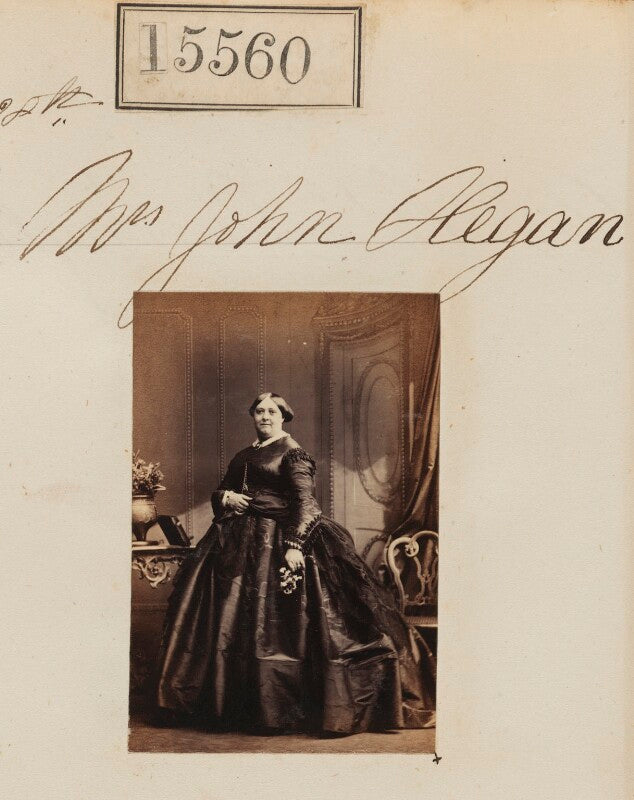 15560
Mrs John Hegan